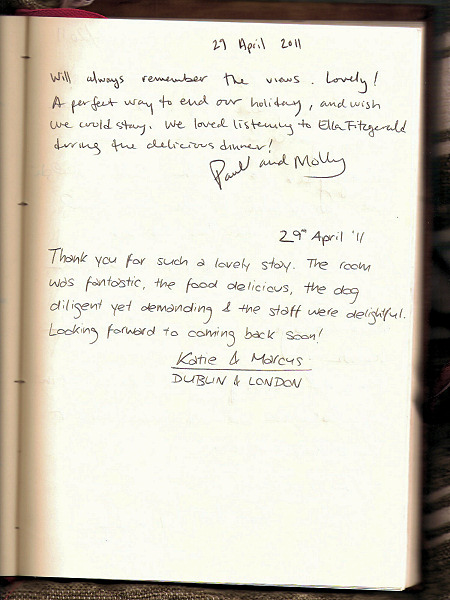 29 April 2011
Will always remember the views. Lovely!
A perfect way to end our holiday, and wish
we could stay. We loved listening to Ella Fitzgerald
during the delicious dinner!
Paul and Molly
29th April '11
Thank you for such a lovely stay. The room
was fantastic, the food delicious, the dog
diligent yet demanding & the staff were delightful.
Looking forward to coming back soon!
Katie & Marcus
DUBLIN & LONDON